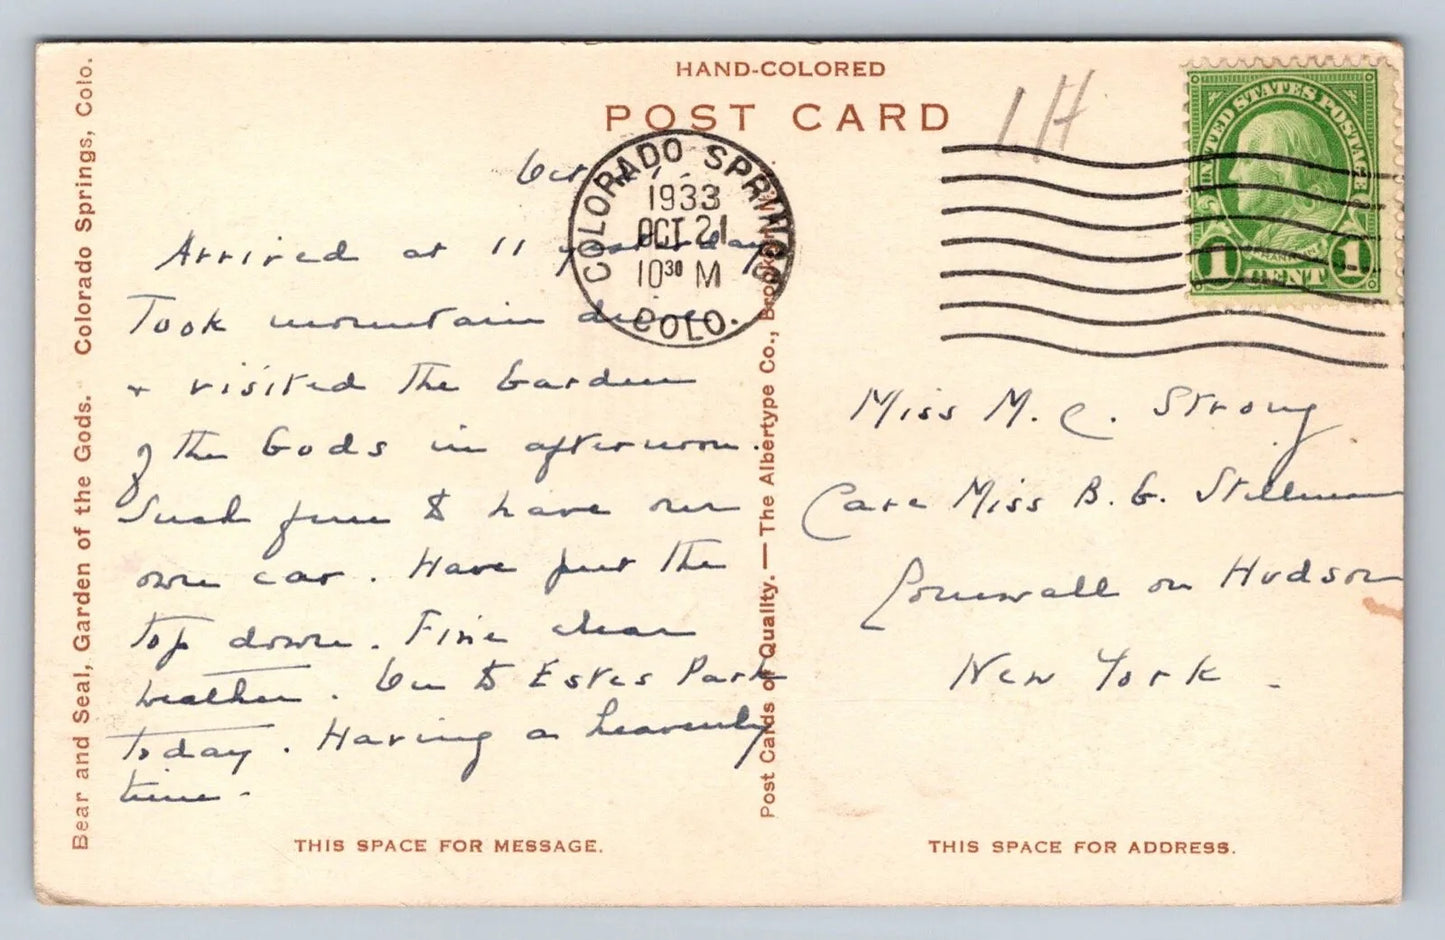 HAND-COLORED
POST CARD
1H
COLORADO SPRINGS
1933
OCT 21
10³⁰ M
COLO.
UNITED STATES POSTAGE
FRANKLIN
1 CENT 1
Oct
Arrived at 11 yesterday
Took mountain drive
+ visited the Garden
of the Gods in afternoon.
Such fun to have our
own car. Have put the
top down. Fine clear
weather. On to Estes Park
today. Having a heavenly
time.
Miss M. C. Strong
Care Miss B. G. Stillman
Cornwall on Hudson
New York
Bear and Seal, Garden of the Gods. Colorado Springs, Colo.
Post Cards of Quality. — The Albertype Co., Brooklyn
THIS SPACE FOR MESSAGE.
THIS SPACE FOR ADDRESS.